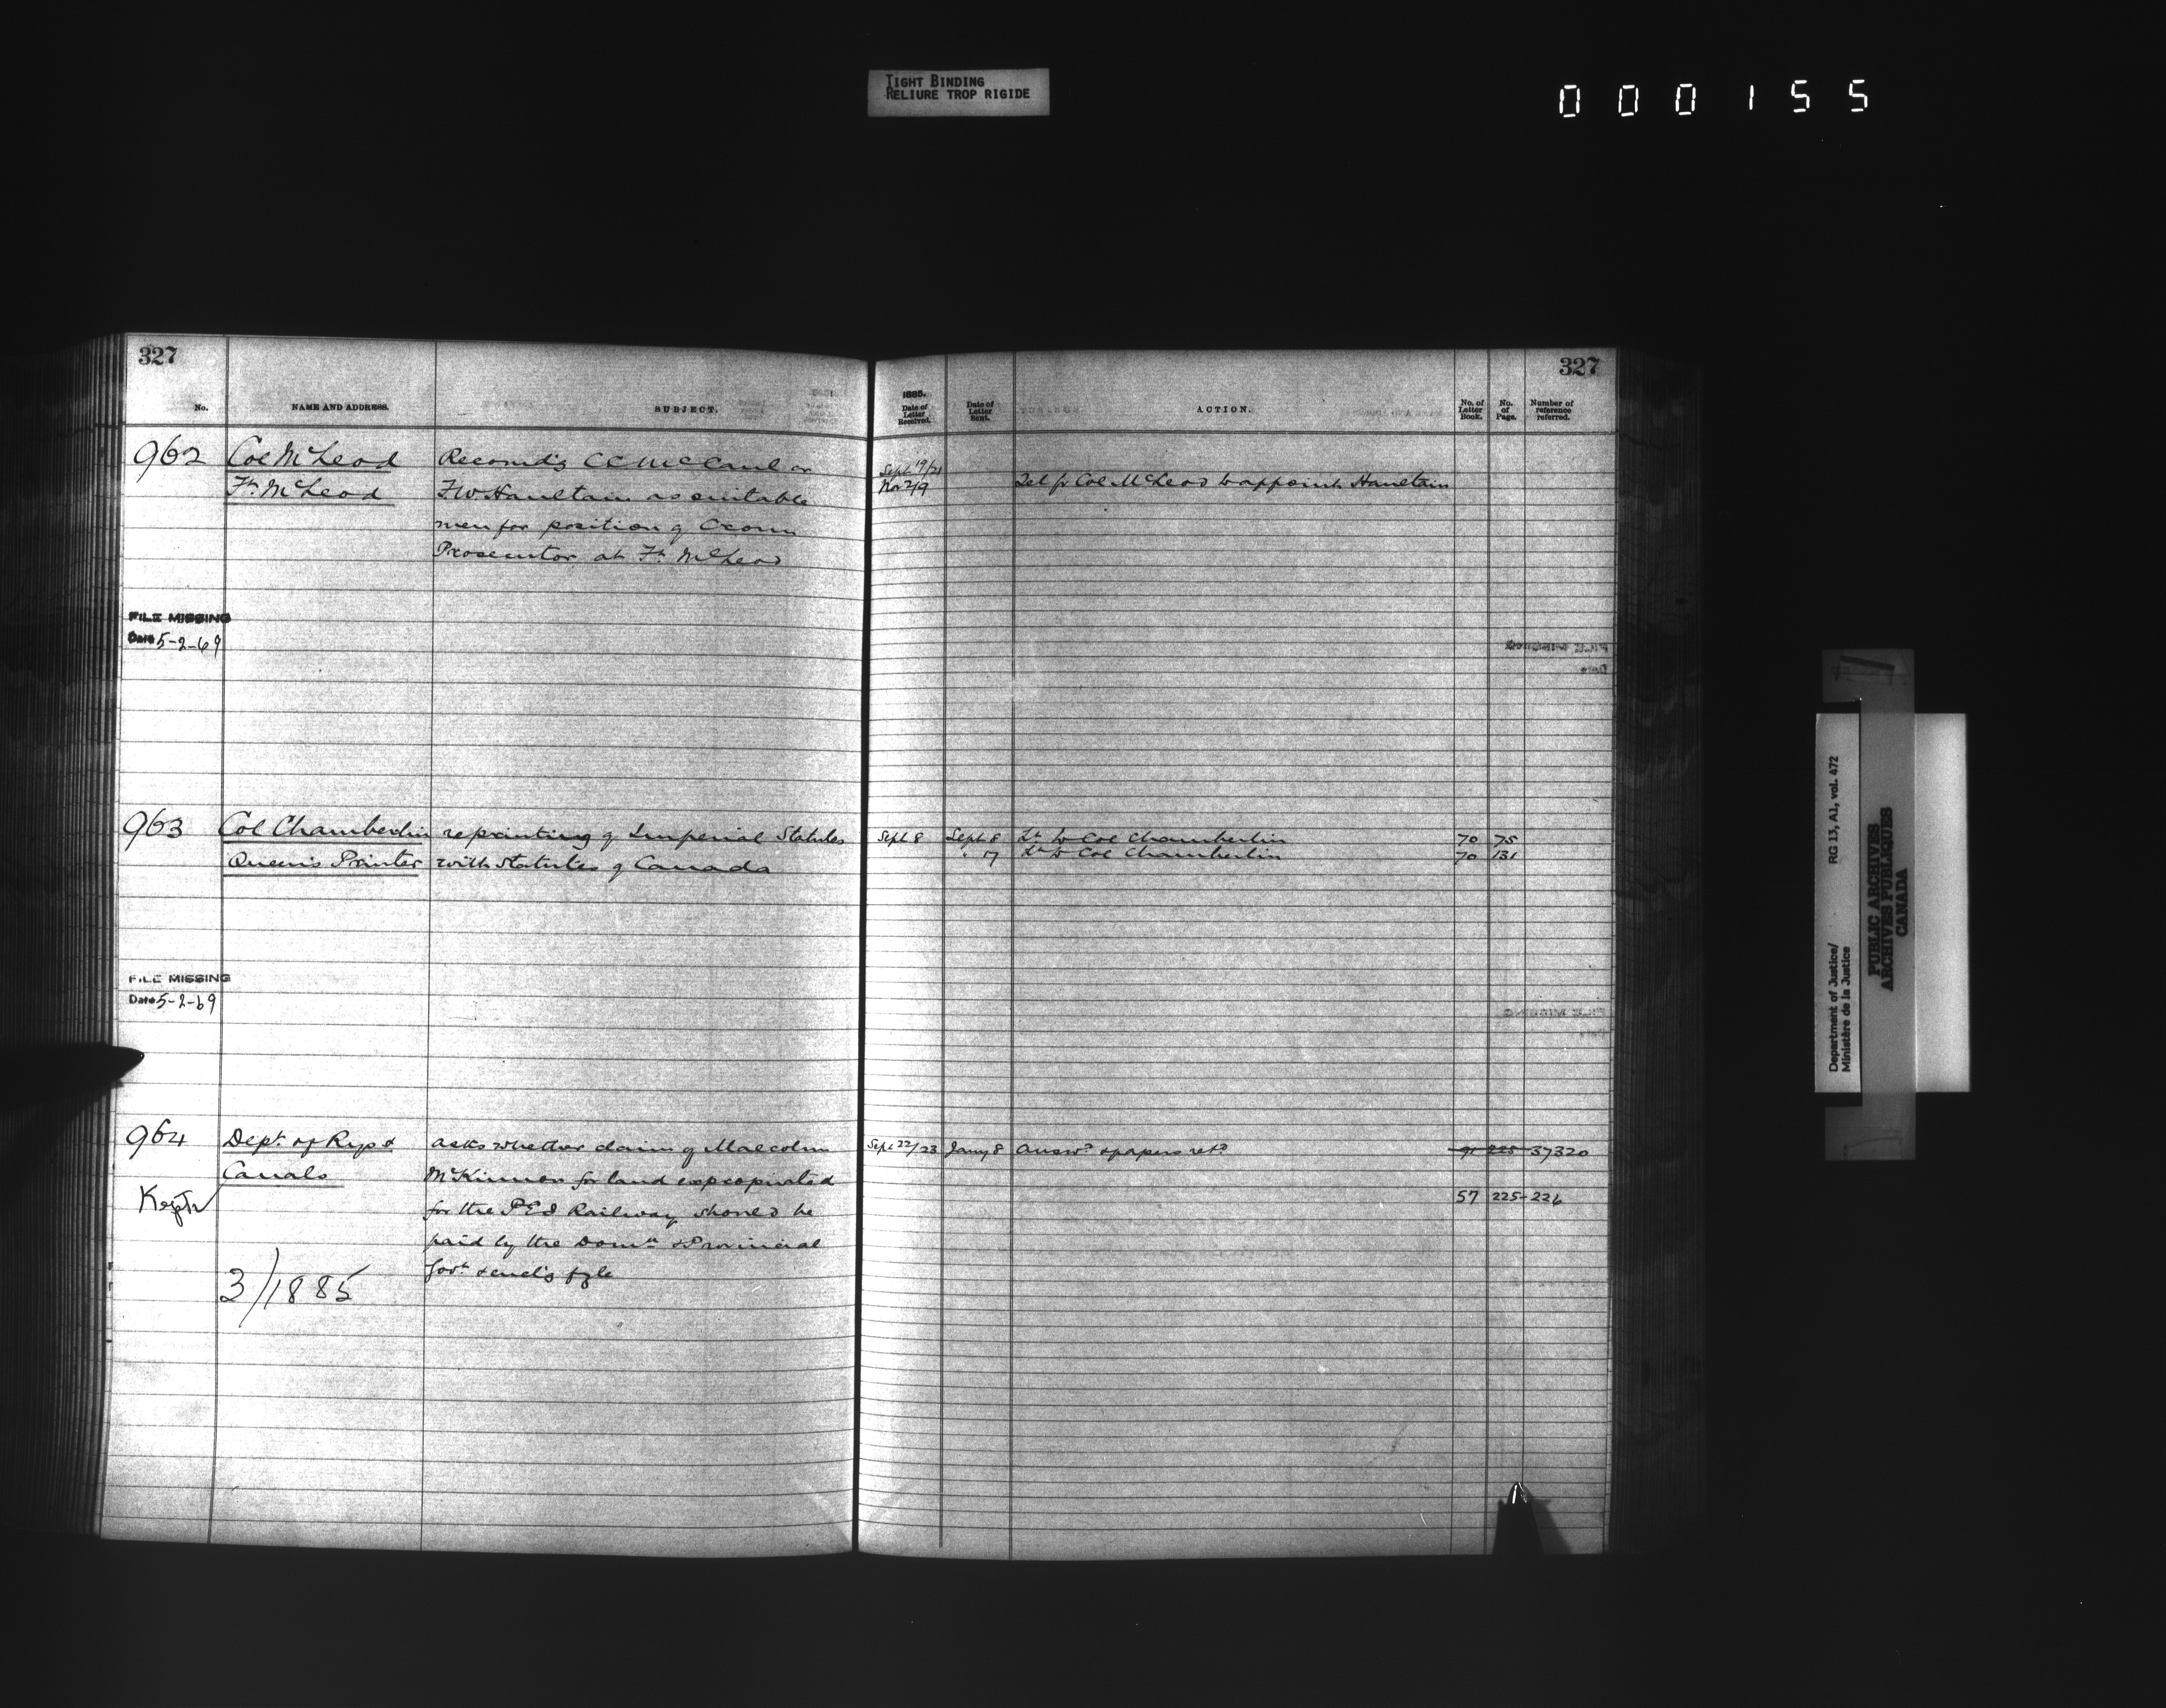 TIGHT BINDING
RELIURE TROP RIGIDE
000155
327
No. NAME AND ADDRESS. SUBJECT.
962 Col McLeod Recomds CC McCaul or
Ft. McLeod FW Haultain as suitable
men for position of Crown
Prosecutor at Ft. McLeod
FILE MISSING
Date 5-2-69
963 Col Chamberlin reprinting of Imperial Statutes
Queen's Printer with Statutes of Canada
FILE MISSING
Date 5-2-69
964 Dept. of Rys & asks whether claim of Malcolm
Canals McKinnon for land expropriated
for the PEI Railway should be
paid by the Domn or Provincial
Govt. & encls fyle
3/1885
327
1885.
Date of Letter Received. Date of Letter Sent. ACTION. No. of Letter Book. No. of Page. Number of reference referred.
Sept 19/21
Nov 2/9 Tel fr Col McLeod to appoint Haultain
Sept 8 Sept 8 Lr to Col Chamberlin 70 75
" 17 Lr to Col Chamberlin 70 131
Sept 22/23 Jany 8 Answd & papers retd 91 225 37320
57 225-226
Department of Justice/ RG 13, A1, vol. 472
Ministère de la Justice
PUBLIC ARCHIVES
ARCHIVES PUBLIQUES
CANADA